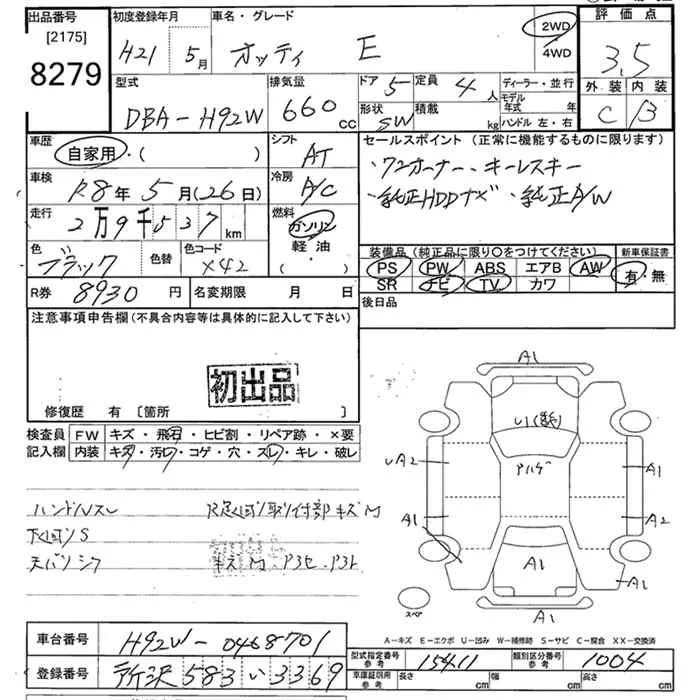 出品番号 初度登録年月 車名・グレード 2WD 評価点
[2175] 8279 H21 5月 オッティ E 4WD 3.5
型式 排気量 ドア 5 定員 4人 ディーラー・並行 外装 内装
DBA-H92W 660cc 形状 SW 積載 kg モデル年式 年 ハンドル 左・右 C B
車歴 自家用・( ) シフト AT セールスポイント (正常に機能するものに限ります)
車検 R8年5月(26日) 冷房 A/C ・ワンオーナー・キーレスキー
走行 2万9千537km 燃料 ガソリン ・純正HDDナビ ・純正A/W
色 ブラック 色替 色コード X42 軽油 ( ・ )
装備品 (純正品に限り○をつけてください) 新車保証書
PS PW ABS エアB AW 有・無
SR ナビ TV カワ
R券 8930円 名変期限 月 日 後日品
注意事項申告欄 (不具合内容等は具体的に記入して下さい)
初出品
修復歴 有 [箇所 ]
検査員 FW キズ・飛石・ヒビ割・リペア跡・×要
記入欄 内装 キズ・汚レ・コゲ・穴・スレ・キレ・破レ
ハンドルスレ
下くぼりS
天バリシワ
キズM
A1
A2
A1
A1
A1
A2
A1
A1
A1
スペア
A-キズ E-エクボ U-凹み W-補修時 S-サビ C-腐合 XX-交換済
車台番号 H92W-0468701
登録番号 所沢583い3369
型式指定番号 参考 15411 類別区分番号 参考 1004
車庫証明用 参考 長さ cm 幅 cm 高さ cm